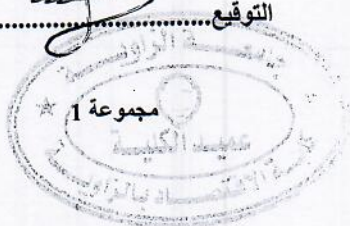 التوقيع
جامعة الزاوية
مجموعة 1
عميد الكلية
كلية الاقتصاد بالزاوية